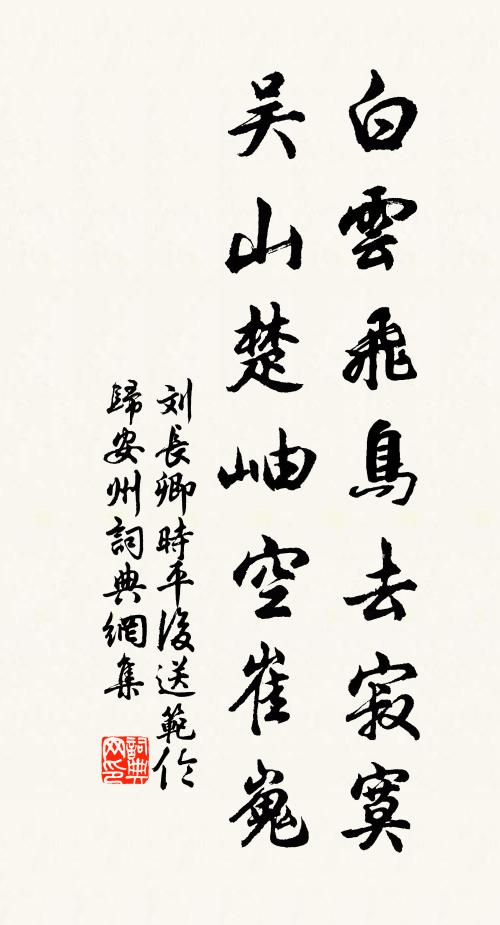 白雲飛鳥去寂寞
吳山楚岫空崔嵬
刘長卿時平後送範伦
歸安州詞典網集
詞典网印